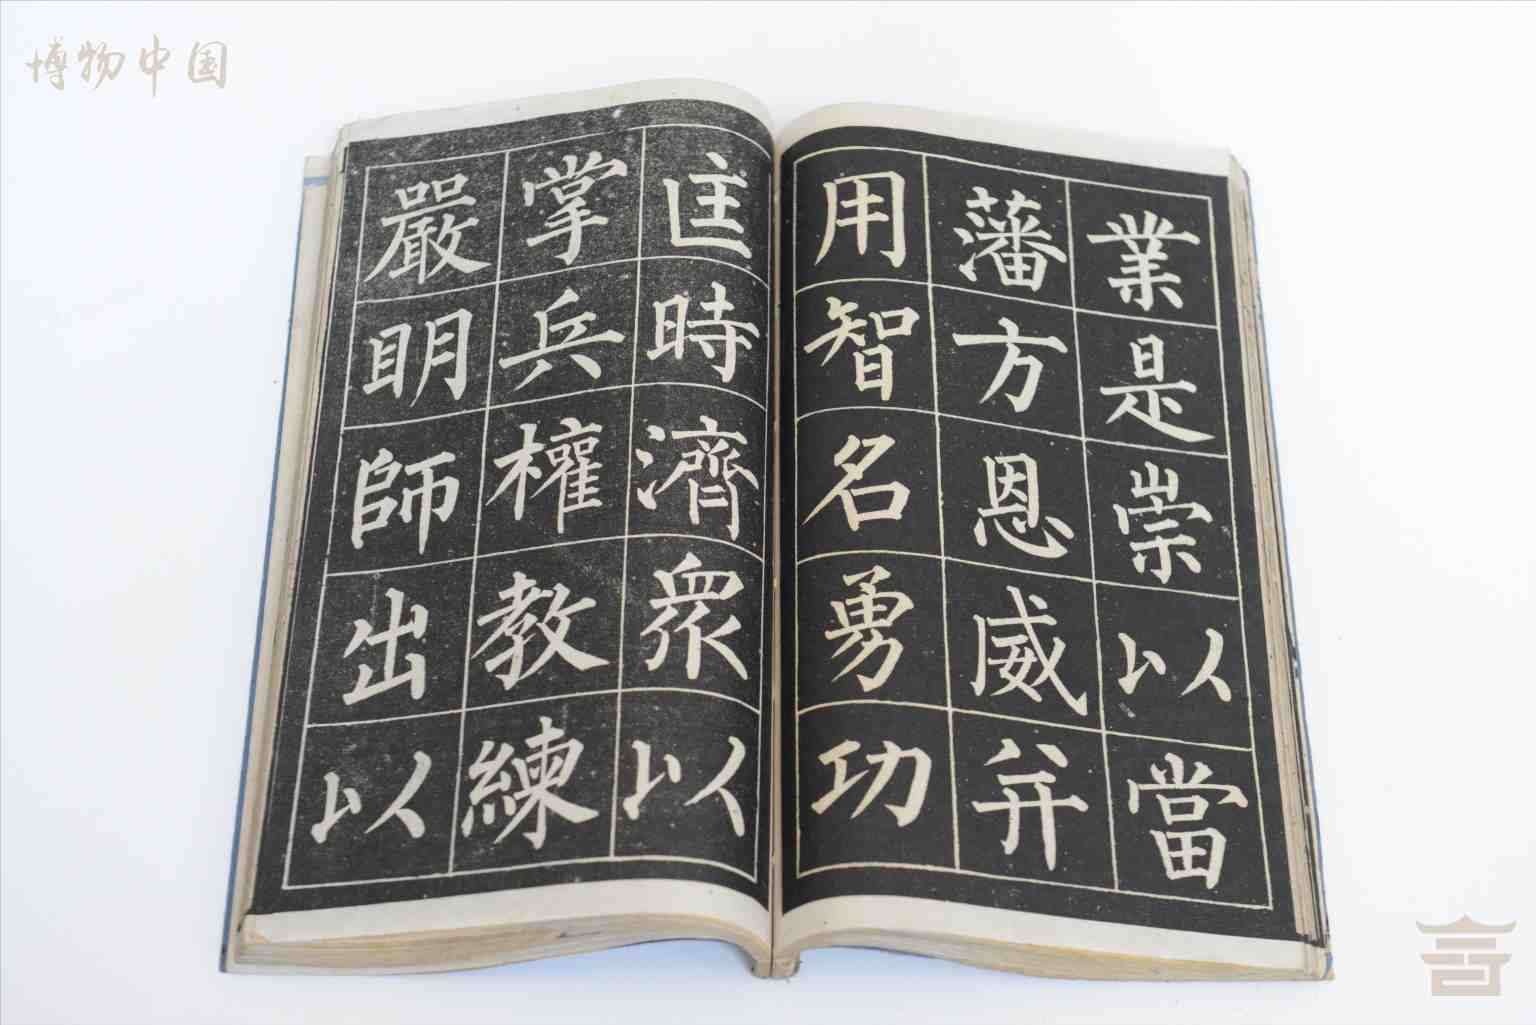 博物中国
業是崇以當
藩方恩威并
用智名勇功
匡時濟衆以
掌兵權教練
嚴明師出以